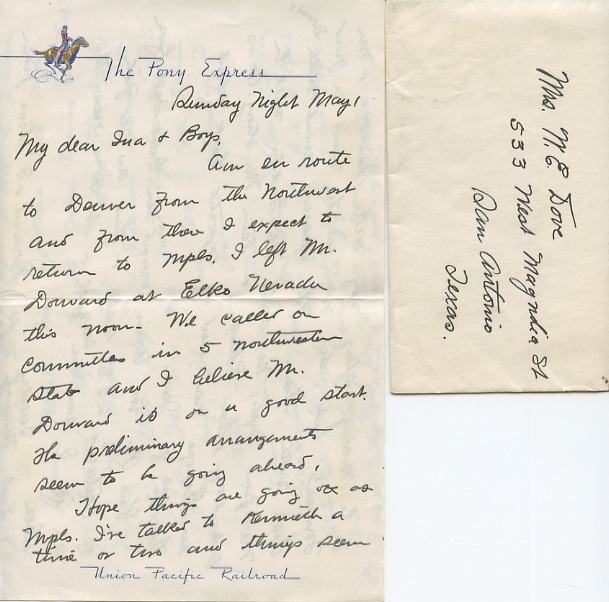 The Pony Express
Sunday Night May 1
My dear Ina & Boys,
Am en route
to Denver from the Northwest
and from there I expect to
return to Mpls. I left Mr.
Dorward at Elko Nevada
this noon - We called on
Committees in 5 northwestern
states and I believe Mr.
Dorward is on a good start.
The preliminary arrangements
seem to be going ahead.
Hope things are going at
Mpls. I've talked to Kenneth a
time or two and things seem
Union Pacific Railroad
Mrs. M.E. Dove
533 West Magnolia St
San Antonio
Texas.